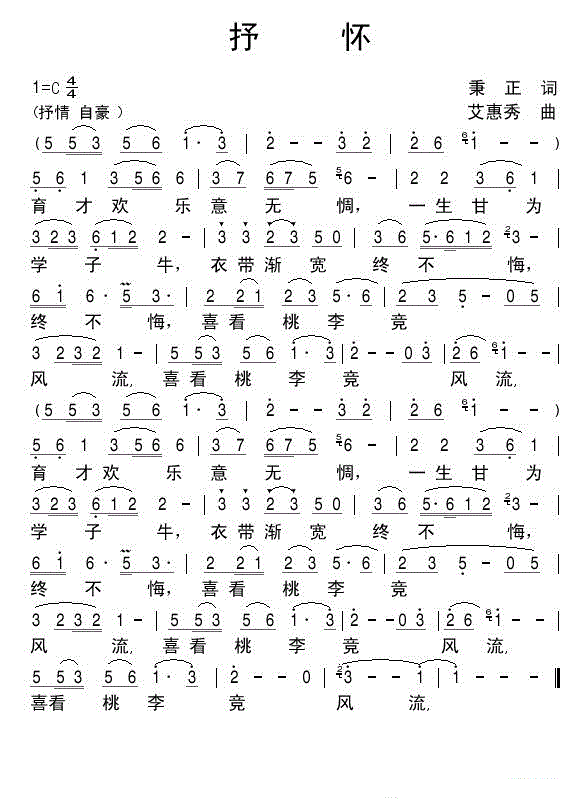 抒 怀
1=C 4/4 秉 正 词
(抒情 自豪 ) 艾惠秀 曲
( 5 5 3 5 6 1· 3 | 2 - - 3 2 | 2 6 6 1 - - )
5 6 1 3 5 6 6 | 3 7 6 7 5 5 6 - - | 2 2 3 6 1 |
育 才 欢 乐 意 无 惆, 一 生 甘 为
3 2 3 6 1 2 2 - | 3 3 2 3 5 0 | 3 6 5· 6 1 2 2 3 - |
学 子 牛, 衣 带 渐 宽 终 不 悔,
6 1 6· 5 3· | 2 2 1 2 2 3 5· 6 | 2 3 5 - 0 5 |
终 不 悔, 喜 看 桃 李 竞
3 2 3 2 1 - | 5 5 3 5 6 1· 3 | 2 - - 0 3 | 2 6 6 1 - - |
风 流, 喜 看 桃 李 竞 风 流,
( 5 5 3 5 6 1· 3 | 2 - - 3 2 | 2 6 6 1 - - )
5 6 1 3 5 6 6 | 3 7 6 7 5 5 6 - - | 2 2 3 6 1 |
育 才 欢 乐 意 无 惆, 一 生 甘 为
3 2 3 6 1 2 2 - | 3 3 2 3 5 0 | 3 6 5· 6 1 2 2 3 - |
学 子 牛, 衣 带 渐 宽 终 不 悔,
6 1 6· 5 3· | 2 2 1 2 2 3 5· 6 | 2 3 5 - 0 5 |
终 不 悔, 喜 看 桃 李 竞
3 2 3 2 1 - | 5 5 3 5 6 1· 3 | 2 - - 0 3 | 2 6 6 1 - - |
风 流, 喜 看 桃 李 竞 风 流,
5 5 3 5 6 1· 3 | 2 - - 0 | 2 3 - - 1 | 1 - - - ‖
喜 看 桃 李 竞 风 流,